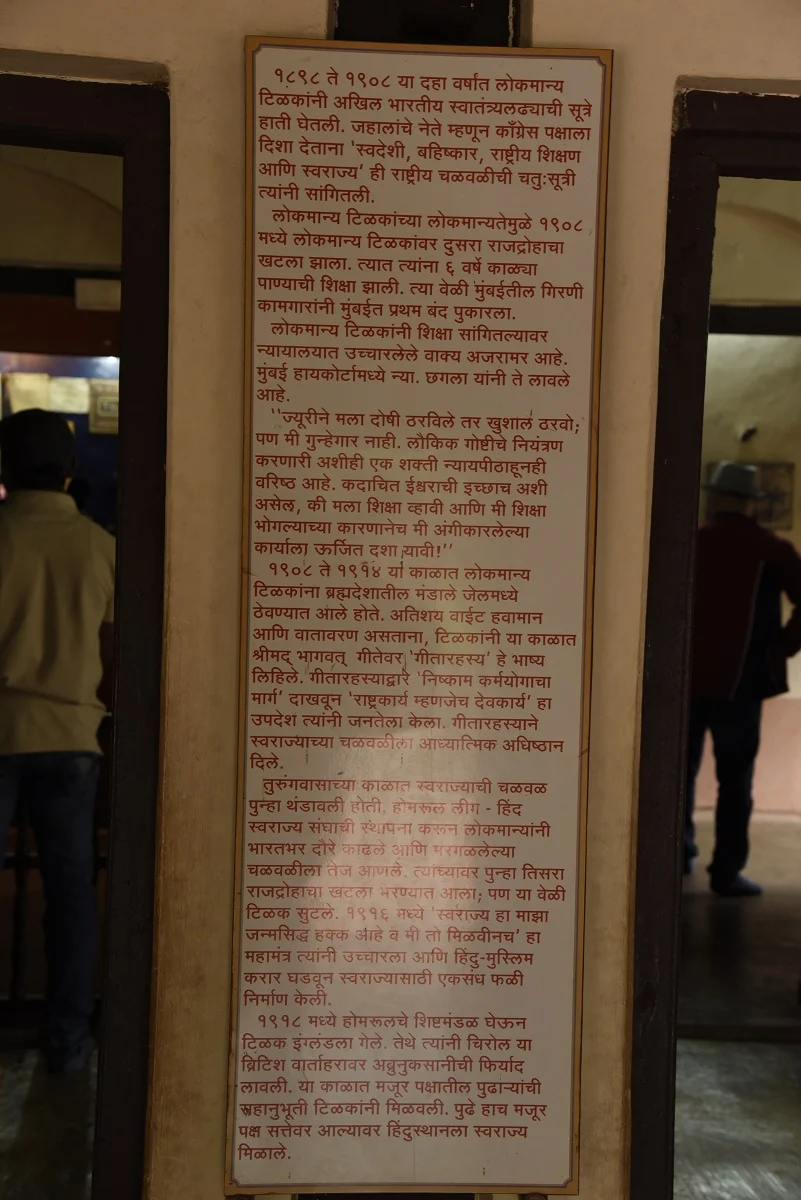 १८९८ ते १९०८ या दहा वर्षांत लोकमान्य
टिळकांनी अखिल भारतीय स्वातंत्र्यलढ्याची सूत्रे
हाती घेतली. जहालांचे नेते म्हणून काँग्रेस पक्षाला
दिशा देताना 'स्वदेशी, बहिष्कार, राष्ट्रीय शिक्षण
आणि स्वराज्य' ही राष्ट्रीय चळवळीची चतुःसूत्री
त्यांनी सांगितली.
लोकमान्य टिळकांच्या लोकमान्यतेमुळे १९०८
मध्ये लोकमान्य टिळकांवर दुसरा राजद्रोहाचा
खटला झाला. त्यात त्यांना ६ वर्षे काळ्या
पाण्याची शिक्षा झाली. त्या वेळी मुंबईतील गिरणी
कामगारांनी मुंबईत प्रथम बंद पुकारला.
लोकमान्य टिळकांनी शिक्षा सांगितल्यावर
न्यायालयात उच्चारलेले वाक्य अजरामर आहे.
मुंबई हायकोर्टामध्ये न्या. छगला यांनी ते लावले
आहे.
''ज्यूरीने मला दोषी ठरविले तर खुशाल ठरवो;
पण मी गुन्हेगार नाही. लौकिक गोष्टीचे नियंत्रण
करणारी अशीही एक शक्ती न्यायपीठाहूनही
वरिष्ठ आहे. कदाचित ईश्वराची इच्छाच अशी
असेल, की मला शिक्षा व्हावी आणि मी शिक्षा
भोगल्याच्या कारणानेच मी अंगीकारलेल्या
कार्याला ऊर्जित दशा यावी!''
१९०८ ते १९१४ या काळात लोकमान्य
टिळकांना ब्रह्मदेशातील मंडाले जेलमध्ये
ठेवण्यात आले होते. अतिशय वाईट हवामान
आणि वातावरण असताना, टिळकांनी या काळात
श्रीमद् भागवत् गीतेवर 'गीतारहस्य' हे भाष्य
लिहिले. गीतारहस्याद्वारे 'निष्काम कर्मयोगाचा
मार्ग' दाखवून 'राष्ट्रकार्य म्हणजेच देवकार्य' हा
उपदेश त्यांनी जनतेला केला. गीतारहस्याने
स्वराज्याच्या चळवळीला आध्यात्मिक अधिष्ठान
दिले.
तुरुंगवासाच्या काळात स्वराज्याची चळवळ
पुन्हा थंडावली होती. होमरूल लीग - हिंद
स्वराज्य संघाची स्थापना करून लोकमान्यांनी
भारतभर दौरे काढले आणि मरगळलेल्या
चळवळीला तेज आणले. त्यांच्यावर पुन्हा तिसरा
राजद्रोहाचा खटला भरण्यात आला; पण या वेळी
टिळक सुटले. १९१६ मध्ये 'स्वराज्य हा माझा
जन्मसिद्ध हक्क आहे व मी तो मिळवीनच' हा
महामंत्र त्यांनी उच्चारला आणि हिंदु-मुस्लिम
करार घडवून स्वराज्यासाठी एकसंध फळी
निर्माण केली.
१९१८ मध्ये होमरूलचे शिष्टमंडळ घेऊन
टिळक इंग्लंडला गेले. तेथे त्यांनी चिरोल या
ब्रिटिश वार्ताहरावर अब्रुनुकसानीची फिर्याद
लावली. या काळात मजूर पक्षातील पुढाऱ्यांची
सहानुभूती टिळकांनी मिळवली. पुढे हाच मजूर
पक्ष सत्तेवर आल्यावर हिंदुस्थानला स्वराज्य
मिळाले.